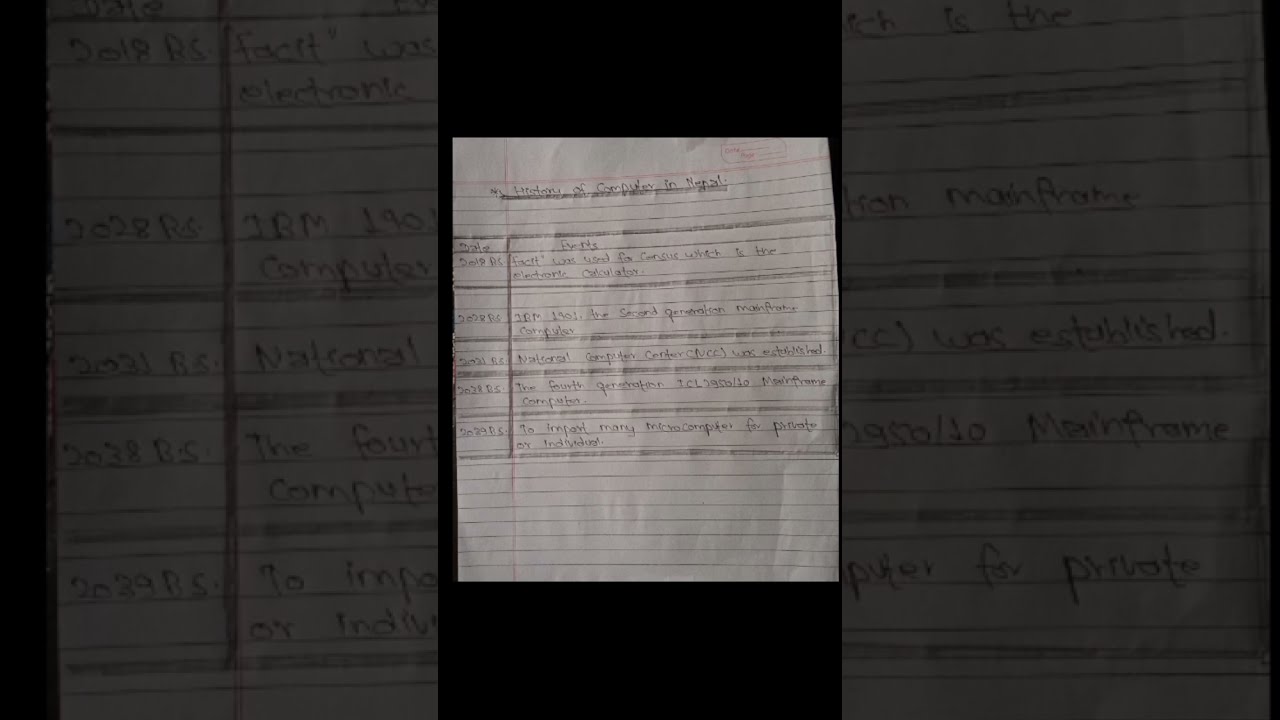 History of Computer in Nepal.
Date Events
2018 B.S. facit" was used for Census which is the
electronic calculator.
2028 B.S. IBM 1401, the Second generation mainframe
Computer
2031 B.S. National Computer Center (NCC) was established.
2038 B.S. The fourth generation ICL 2950/10 Mainframe
Computer.
2039 B.S. To import many microcomputer for private
or individual.